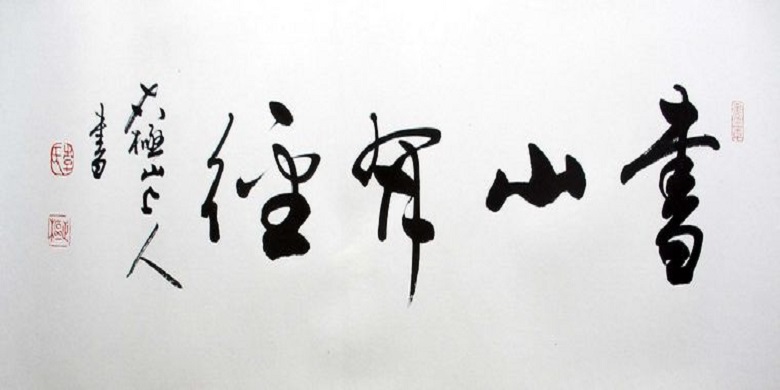 書山有徑
太極山上人
書